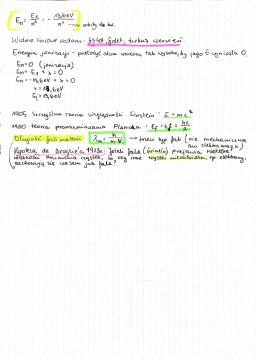 En = E1/n² = -13,6eV/n²
Widmo liniowe wodoru: fiolet, fiolet, turkus czerwień
Energia jonizacji - przenieść atom wodoru tak wysoko, by jego E wynosiła 0.
En=0 (jonizacja)
En= E1 + x = 0
En= -13,6eV + x = 0
x = 13,6eV
Ej=13,6eV
1905 Szczególna Teoria Względności Einstein: E=mc²
1900 teoria promieniowania Plancka: Ef = hf = hc/λ
Długość fali materii: λ = h/m·V → inny typ fali (nie mechaniczna ani elektromagn.)
Hipoteza de Broglie'a 1923r: Jeżeli fala (światło) przejawia niektóre
własności strumienia cząstek, to czy inne cząstki, np. elektrony,
zachowują się czasem jak fala?